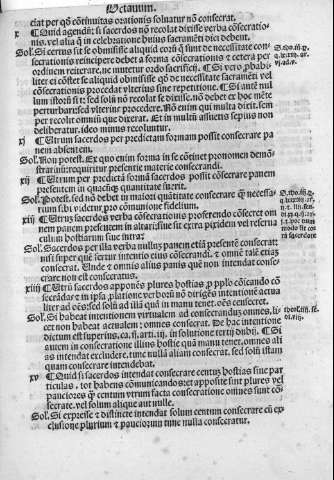 Octauum.
ctat per qd̄ cōtinuitas orationis soluatur nō consecrat.
x ¶ Quid agendū: si sacerdos nō recolat dixisse verba cōsecratio-
nis, vel aliqͣ in celebratione huius sacramēti dici debent.
Sol. Si certus sit se obmisisse aliquid eorū q̄ sunt de necessitate con-
secrationis reincipere debet a forma cōsecrationis & cetera per
ordinem reiterare, ne mutetur ordo sacrificij. ¶ Si vero ꝓbabi-
liter ei cōstet se aliquid obmisisse qd̄ de necessitate sacramēti vel
consecrationis procedat vlterius sine repetitione. ¶ Si autē nul-
lum istorū sit: sed solū nō recolat se dixisse. nō debet ex hoc mēte
perturbari: sed vlterius procedere. Nō enim qui multa dixit, sem
per recolit omnia que dixerat. Et in multū assuetis sepius non
deliberatur. ideo minus recoluntur.
xj ¶ Utrum sacerdos per predictam formam possit consecrare pa
nem absentem.
Sol. Non potest. Ex quo enim forma in se cōtinet pronomen demō-
stratiuū: requiritur presentie materie consecrandi.
xij ¶ Utrum per predictā formā sacerdos possit cōsecrare panem
presentem in quacūqͣ quantitate fuerit.
Sol. Potest. sed nō debet in maiori quātitate consecrare qͣ necessa-
rium sibi videtur, pro cōmunione fidelium.
xiij ¶ Utrum sacerdos verba cōsecrationis proferendo cōsecret om
nem panem presentem in altari: siue sit extra pixidem vel reserua
culum hostiarum siue intra?
Sol. Sacerdos per illa verba nullum panem etiā presentē consecrat:
nisi super quē fertur intentio eius cōsecrandi. & omnē talē etiās
consecrat. Unde & omnis alius panis quē non intendat conse-
crare non est consecratus.
xiiij ¶ Utrū sacerdos apponēs plures hostias, ꝓ pplo cōicando cō
secrādas & in ipsa ꝓlatione verborū nō dirigēs intentionē actua
liter ad oēs: sed solū ad illā quā in manu tenet. oēs consecret.
Sol. Si habeat intentionem virtualem ad consecrandus omnes, li-
cet non habeat actualem: omnes consecrat. De hac intentione
dictum est superius, ca. ij. arti. iij. in solutione tertij dubij. ¶ Si
autem in consecratione illius hostie quā manu tenet, omnes ali
as intendat excludere, tunc nullā aliam consecrat. sed solū istam
quam consecrare intendebat.
xv ¶ Quid si sacerdos intendat consecrare centum hostias siue par
ticulas, tot habens cōmunicandos: et apposite sint plures vel
pauciores qͣ centum vtrum facta consecratione omnes sunt cō-
secrate. vel solum alique aut nulle.
Sol. Si expresse & distincte intendat solum centum consecrare cū ex-
clusione plurium & pauciorum tunc nulla consecratur.